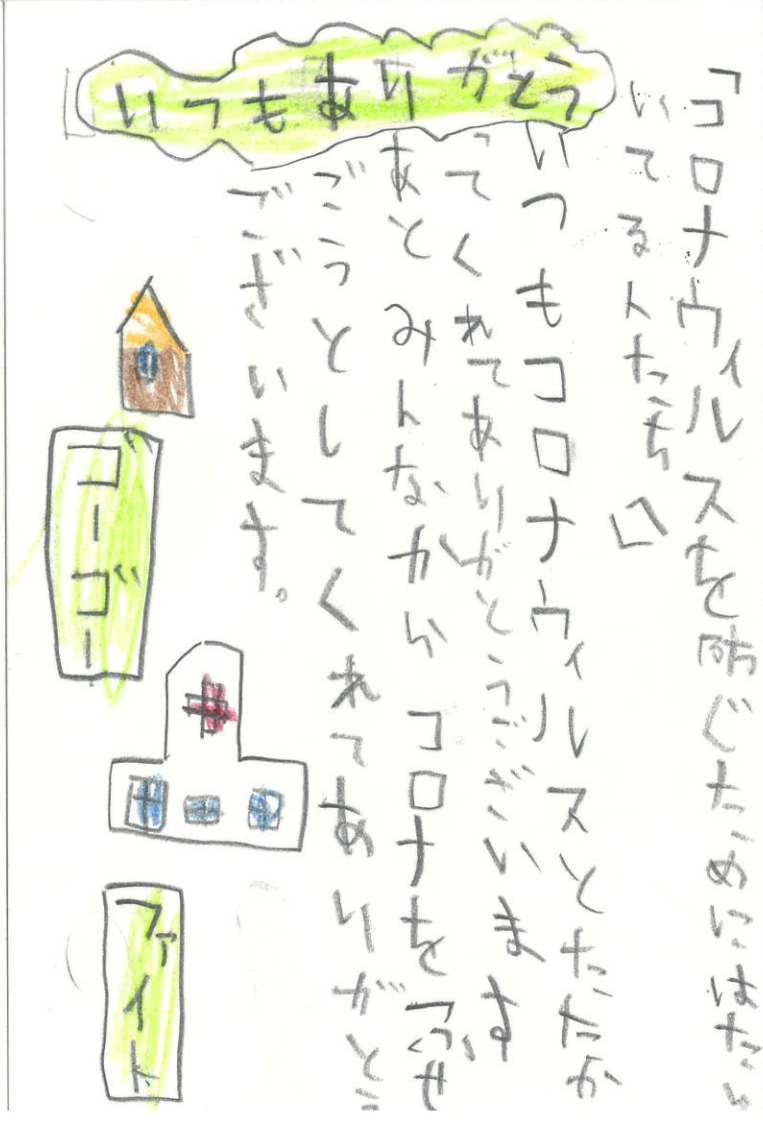 「コロナウィルスを防ぐためにはたら
いてる人たち」
いつもコロナウィルスとたたか
ってくれてありがとうございます
あと みんなから コロナをふせ
ごうとしてくれてありがとう
ございます。
いつもありがとう
ゴーゴー
ファイト